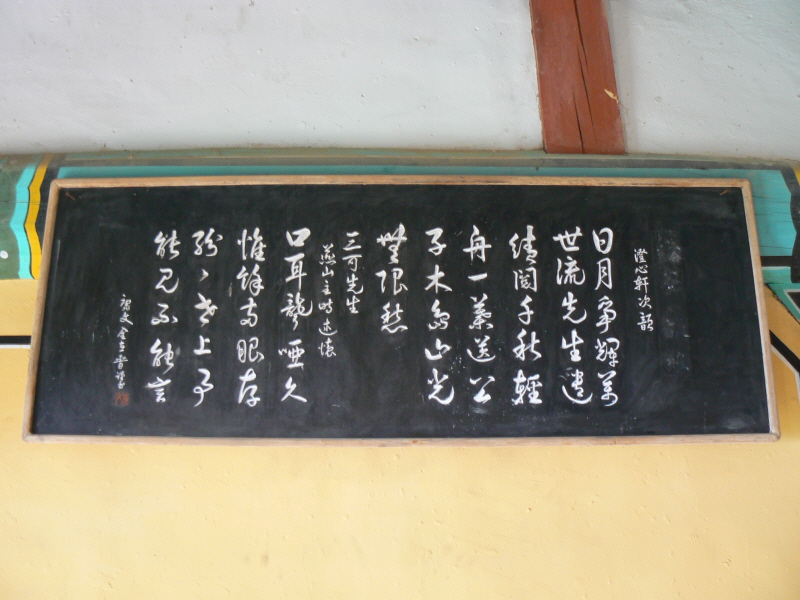 澄心軒次韻
日月爭輝萬
世流先生遺
績閱千秋輕
舟一葉送公
子木島山光
無限愁
三可先生
燕山主時述懷
口耳聾啞久
惟餘兩眼存
紛〻世上事
能見不能言
金